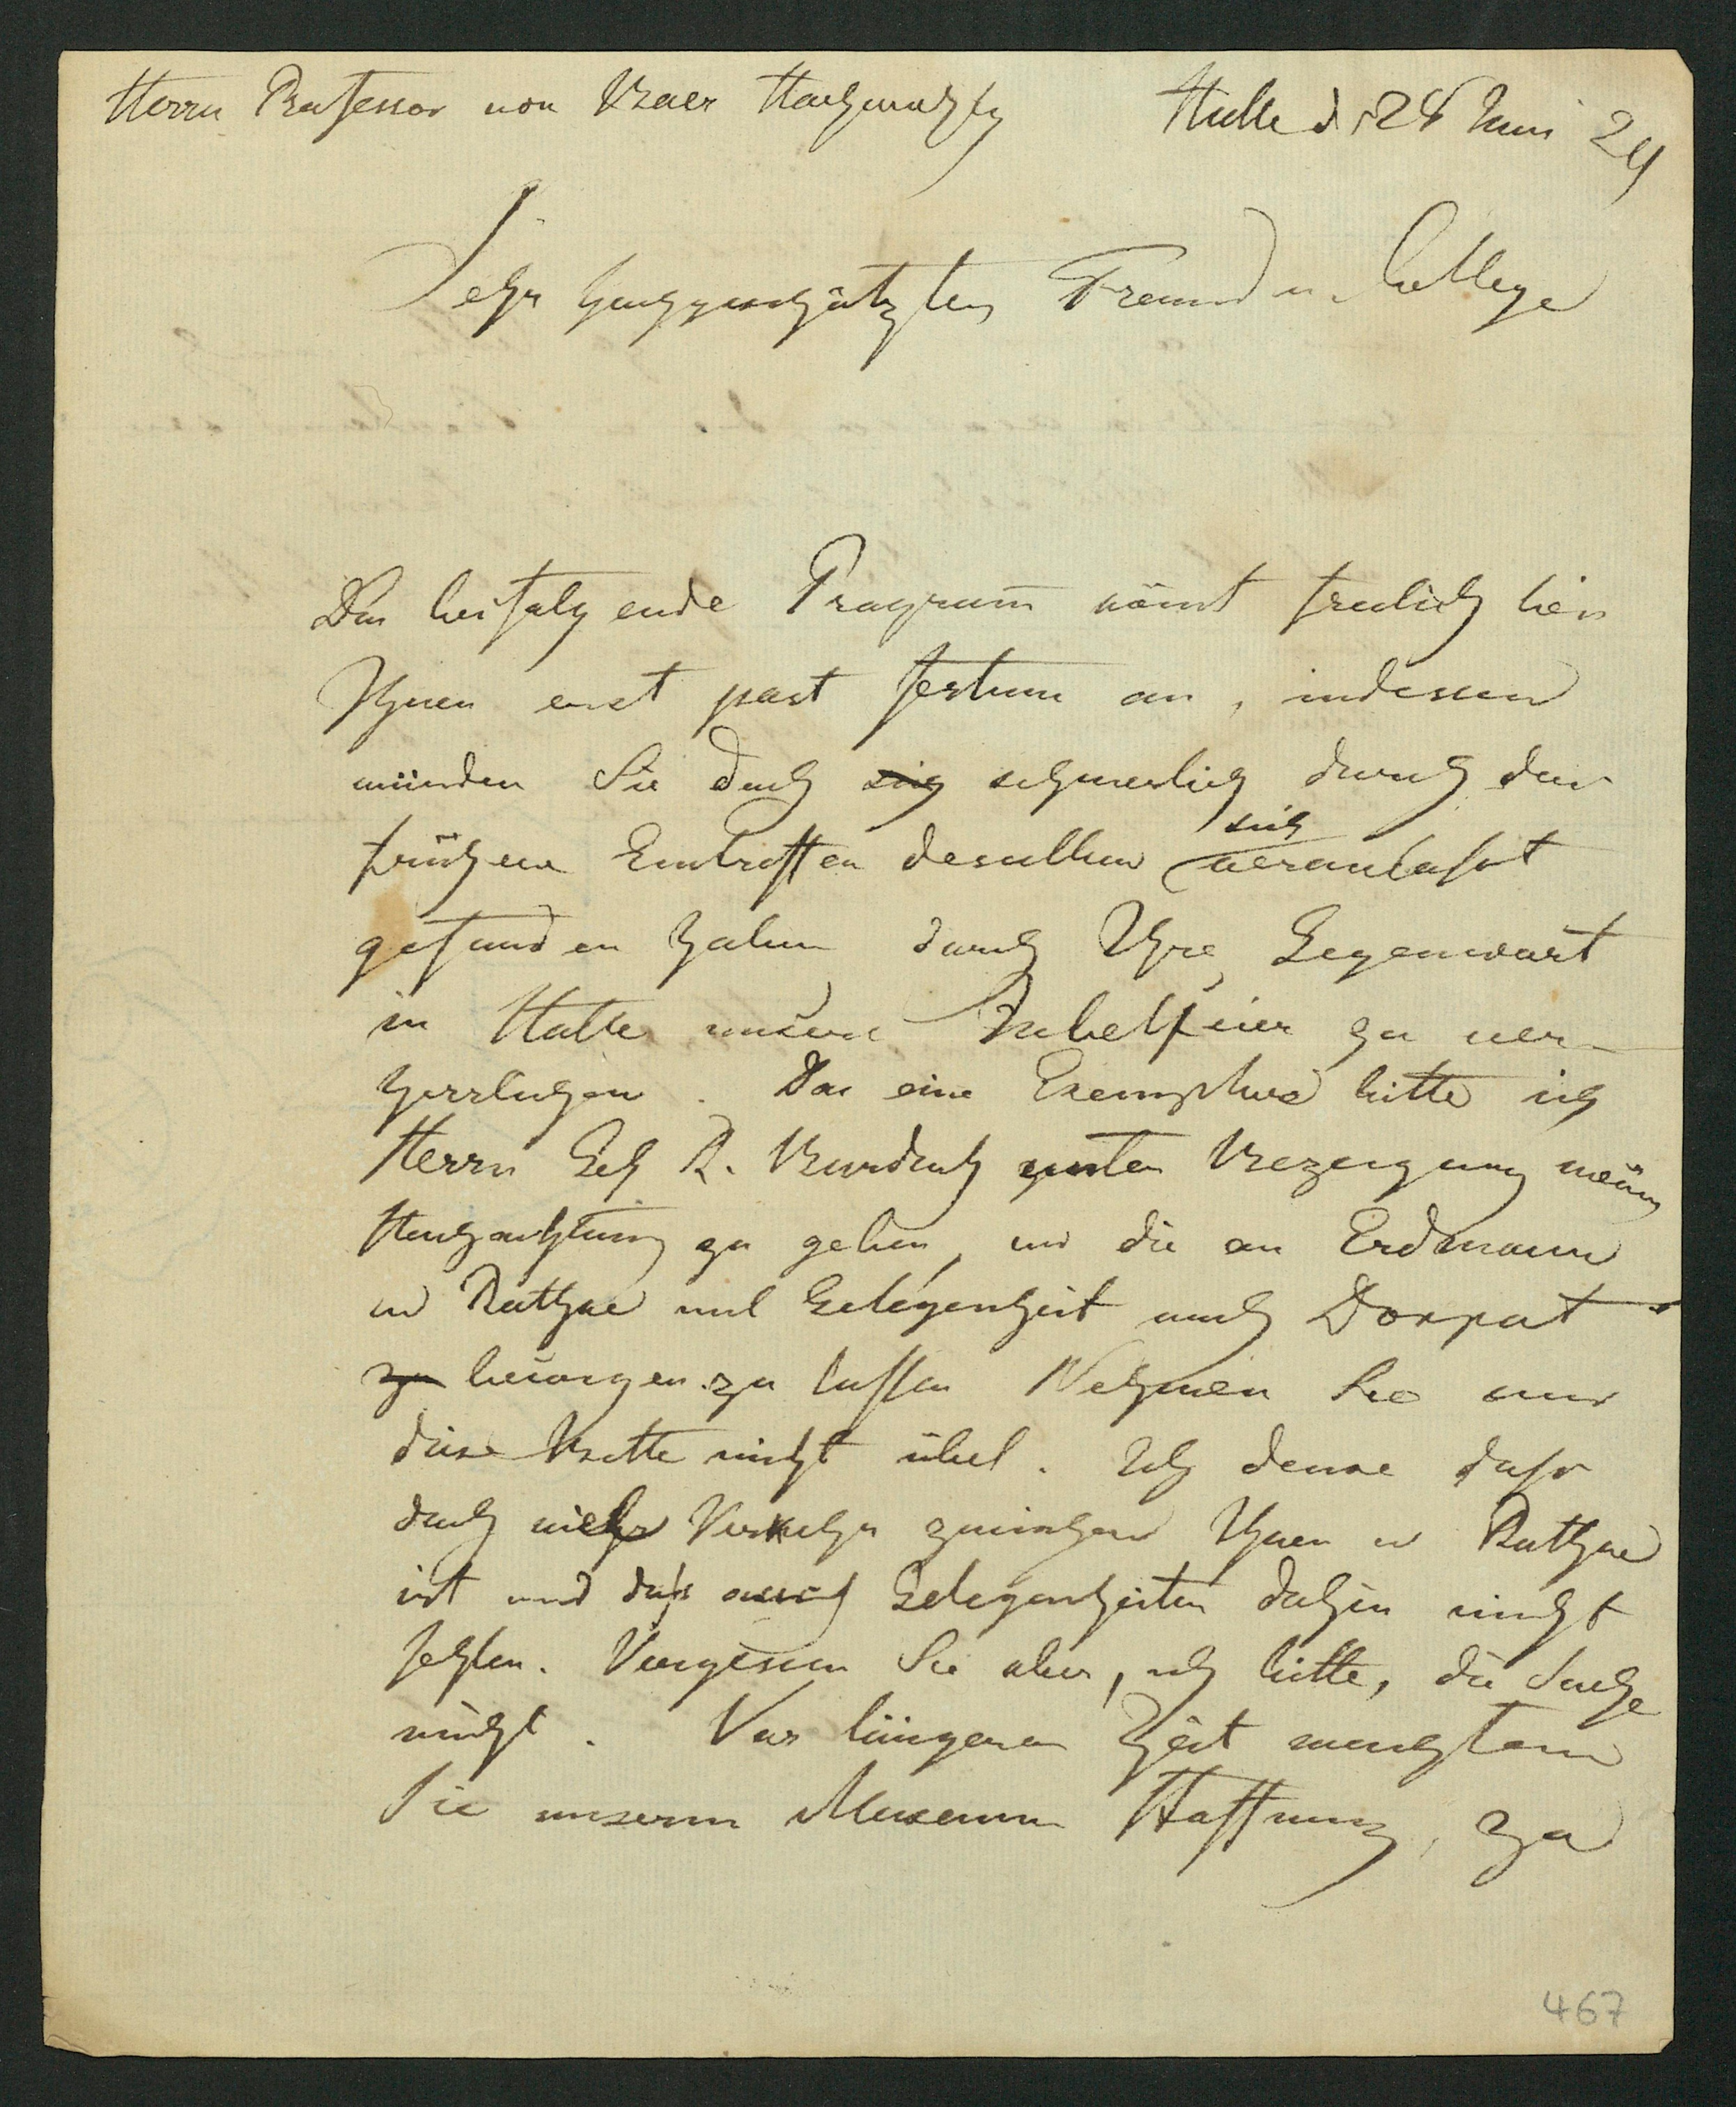 Herrn Professor von Baer Hochwohlg
Halle d. 24 Juni 29
Sehr hochgeschätzter Freund u. College
Das beifolgende Programm kömt freilich bei
Ihnen erst post festum an, indessen
würden Sie doch sich schwerlich durch das
frühere Eintreffen desselben sich veranlasst
gefunden haben durch Ihre Gegenwart
in Halle unsere Jubelfeier zu ver-
herrlichen. Das eine Exemplar bitte ich
Herrn Geh R. Burdach unter Bezeigung meiner
Hochachtung zu geben, und die an Erdmann
u Rathke mit Gelegenheit nach Dorpat
zu besorgen zu lassen Nehmen Sie mir
diese Bitte nicht übel. Ich denke dass
doch viel Verkehr zwischen Ihnen u Rathke
ist und dass auch Gelegenheiten dahin nicht
fehlen. Vergessen Sie aber, ich bitte, die Sache
nicht. Vor längerer Zeit machten
Sie unserm Museum Hoffnung, zu
467